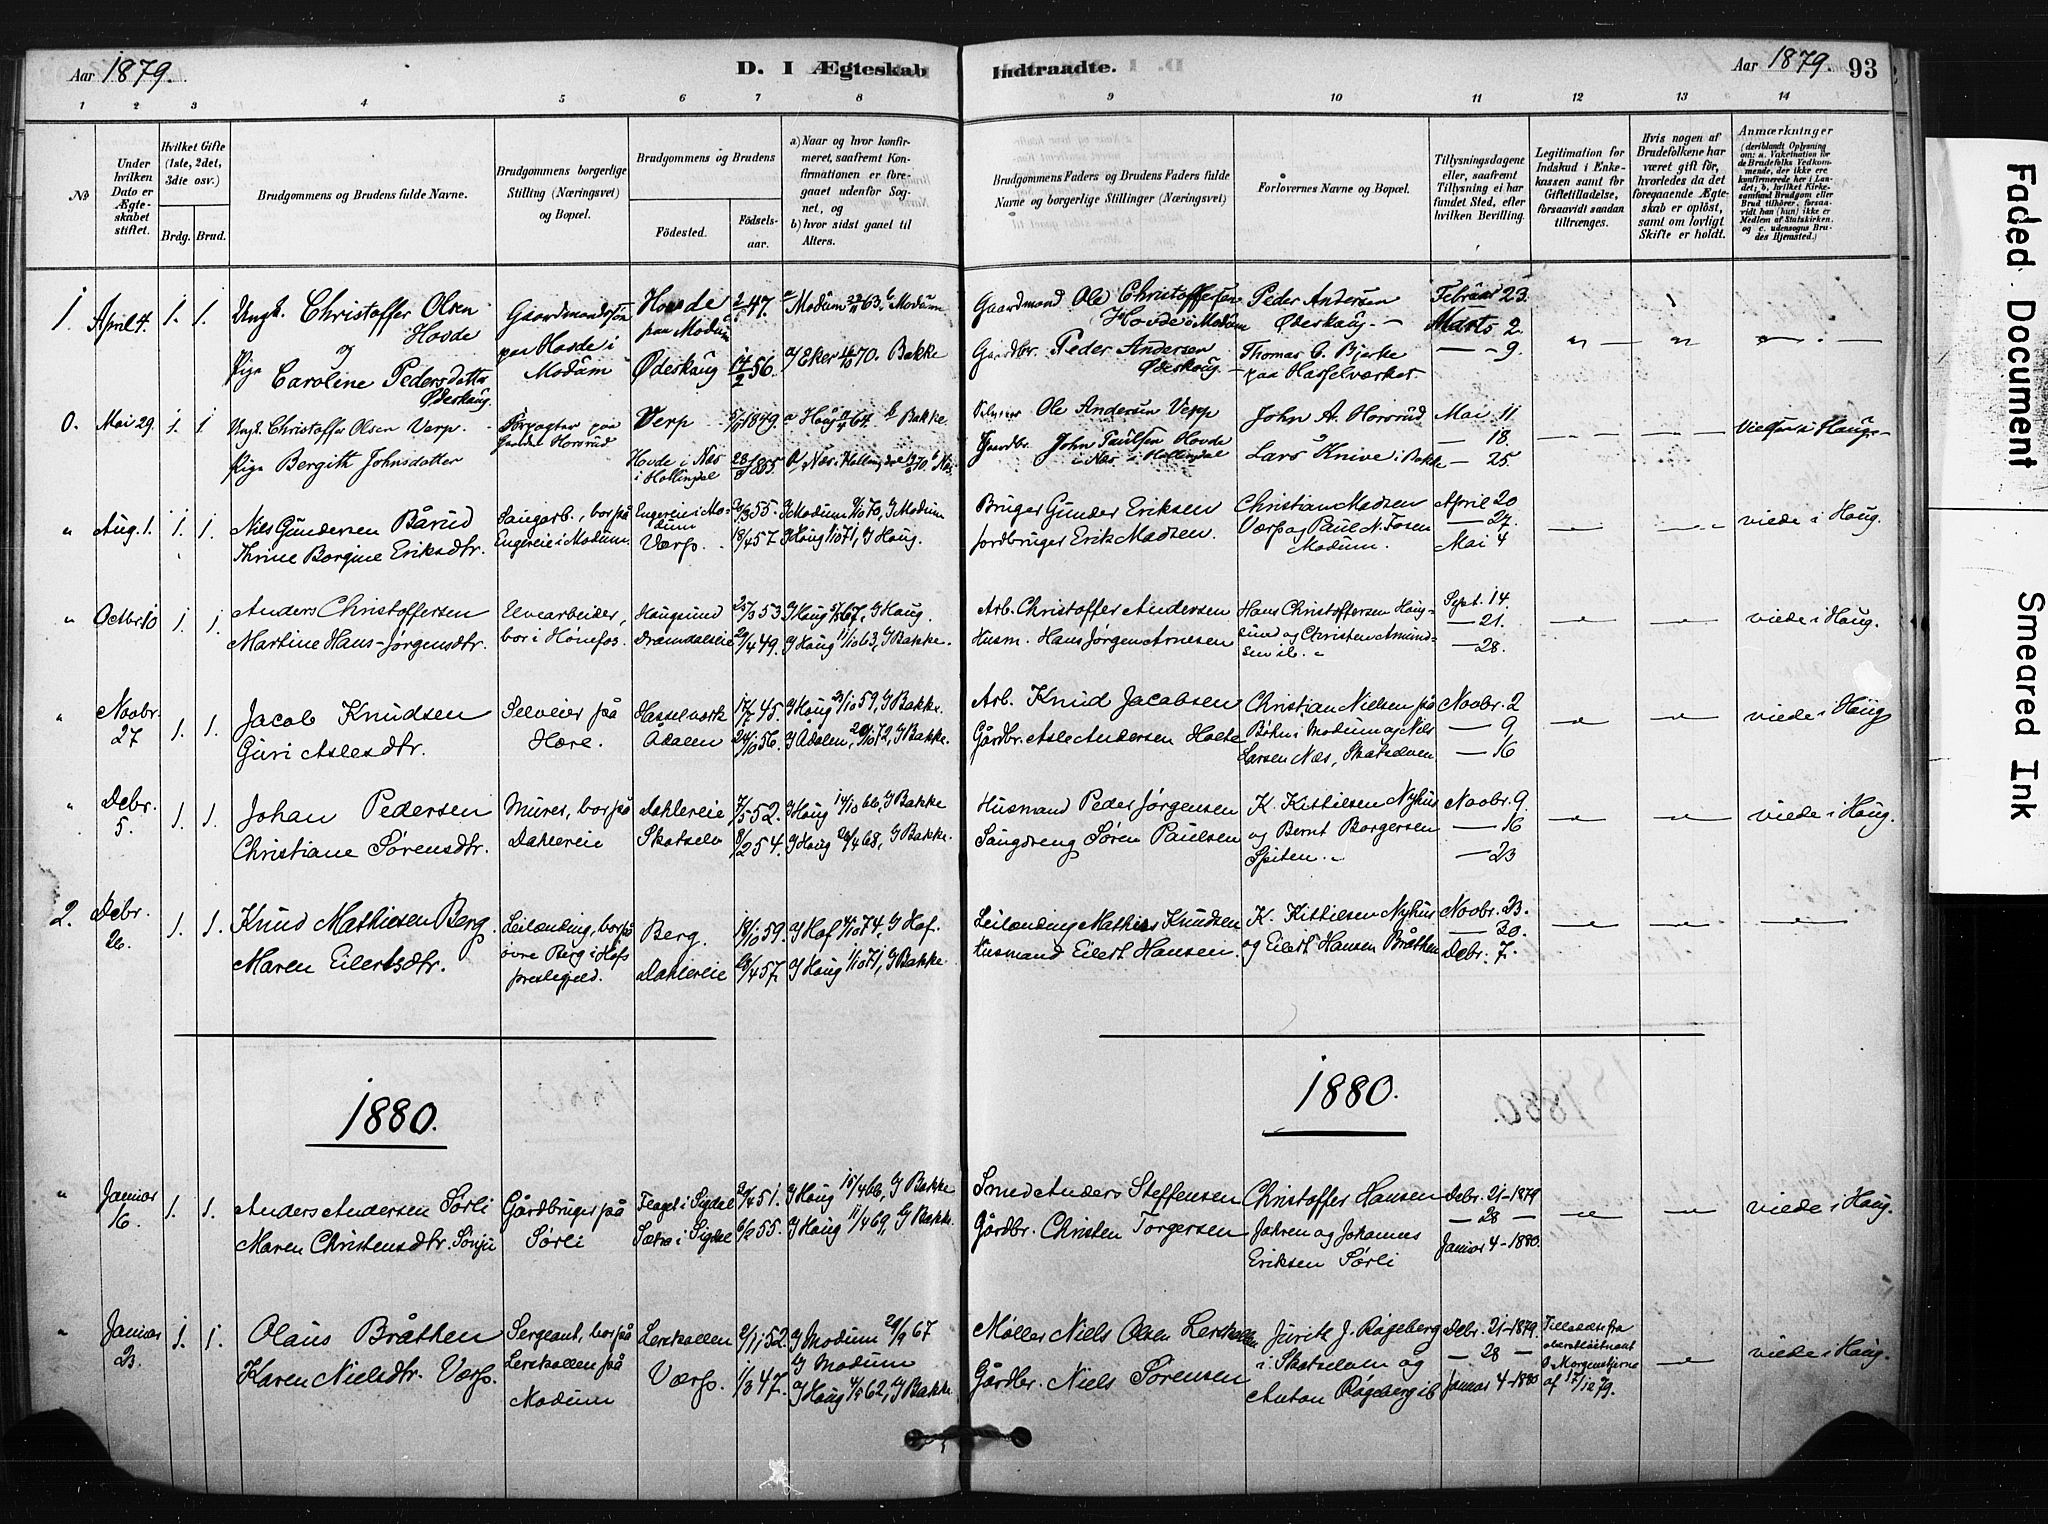 Aar 1879.
D. I Ægteskab
Indtraadte.
Aar 1879. 93
1 2 3 4 5 6 7 8 9 10 11 12 13 14
No
Under hvilken Dato er Ægte-skabet stiftet.
Hvilket Gifte (1ste, 2det, 3die osv.)
Brdg. Brud.
Brudgommens og Brudens fulde Navne.
Brudgommens borgerlige Stilling (Næringsvei) og Bopæl.
Brudgommens og Brudens
Födested. Födsels-aar.
a) Naar og hvor konfir-meret, saafremt Kon-firmationen er fore-gaaet udenfor Sog-net, og
b) hvor sidst gaaet til Alters.
Brudgommens Faders og Brudens Faders fulde Navne og borgerlige Stillinger (Næringsvei)
Forlovernes Navne og Bopæl.
Tillysningsdagene eller, saafremt Tillysning ei har fundet Sted, efter hvilken Bevilling.
Legitimation for Indskud i Enke-kassen samt for Giftetilladelse, forsaavidt saadan tiltrænges.
Hvis nogen af Brudefolkene har været gift før, hvorledes da det foregaaende Ægte-skab er oplöst, samt om lovligt Skifte er holdt.
Anmærkninger
(deriblandt Oplysning om: a. Vakcination for de Brudefolks Vedkom-mende, der ikke ere konfirmerede her i Lan-det; b. hvilket Kirke-samfund Brudgom eller Brud tilhörer, forsaa-vidt han (hun) ikke er Medlem af Statskirken, og c. udensogns Bru-des Hjemsted.)
1. April 4. 1. 1. Ungk. Christoffer Olsen Hovde
og
Pige Caroline Pedersdatter Ødeskaug.
Gaardmandssøn paa Hovde i Modum
Hovde paa Modum 2/1 47. a Modum 22/11 63. b Modum
Ødeskaug 14/2 56. Eker 70. Bakke
Gaardmand Ole Christoffersen Hovde i Modum
Gaardbr. Peder Andersen Ødeskaug.
Peder Andersen Ødeskaug.
Thomas C. Bjerke paa Hasselværket.
Februar 23.
Marts 2.
— 9.
0. Mai 29. 1. 1. Ungk. Christoffer Olsen Verp.
Pige Bergith Johnsdatter
Forpagter paa Gaarden Horsrud
Verp 1849. a Haug 64. b Bakke.
Hovde i Næs i Hallingdal 1855. Næs i Hallingdal 70. b Næs
Ole Andersen Vepp
Gaardbr. John Paulsen Hovde i Næs i Hallingdal
John A. Horsrud
Lars Knive i Bakke
Mai 11
— 18.
— 25.
Viet i Haug
" Aug. 1. 1. 1. Nils Gundersen Bårud
Thrine Borgine Eriksdtr.
Saugarb., bor på Engereie i Modum.
Engereie i Modum 55. G Modum 70, G Modum
Værp. 18/4 57. G Haug 1/10 71, G Haug.
Bruger Gunder Eriksen
Jordbruger Erik Madsen.
Christian Madsen Værp og Paul N. Fosen Modum.
April 20
— 27.
Mai 4
viede i Haug.
" Octbr 10 1. 1. Anders Christoffersen
Martine Hans-Jørgensdtr.
Elvearbeider, bor i Hønefos.
Haugsund 25/3 53 G Haug 67, G Haug.
Dramdaleie 49. G Haug 11/10 63, G Bakke.
Arb. Christoffer Andersen
Husm. Hans Jørgen Arnesen
Hans Christoffersen Haug-sund og Christen Amund-sen ib. "
Sept. 14.
— 21.
— 28.
viede i Haug.
" Novbr. 27 1. 1. Jacob Knudsen
Guri Aslesdtr.
Selveier på Hære.
Hasselverk 17/7 45. G Haug 2/10 59, G Bakke.
Ådalen 24/10 56. G Ådalen, 20/10 72, G Bakke.
Arb. Knud Jacobsen
Gårdbr. Asle Andersen Holte
Christian Nielsen på Bøhn i Modum og Nils Larsen Næs, Skotselven
Novbr. 2
— 9
— 16
viede i Haug
" Debr. 5. 1. 1. Johan Pedersen
Christiane Sørensdtr.
Murer, bor på Dahlereie
Dahlereie 7/5 52. G Haug 14/10 66, G Bakke
Skotselv 8/2 54. G Haug 26/4 68, G Bakke.
Husmand Peder Jørgensen
Saugdreng Søren Paulsen
K. Kittilsen Nyhus og Bernt Borgersen Spiten. "
Novbr. 9.
— 16
— 23
viede i Haug.
2. Debr. 26. 1. 1. Knud Mathiesen Berg
Maren Eilertsdtr.
Leilænding, bor på øvre Berg i Hofs prestegjeld.
Berg. 18/10 59. G Hof 4/10 74, G Hof.
Dahlereie 28/4 57. G Haug 1/10 71, G Bakke
Leilænding Mathis Knudsen
Husmand Eilert Hansen.
K. Kittilsen Nyhus og Eilert Hansen Bråthen
Novbr. 23.
— 30.
Debr. 7.
1880.
1880.
" Januar 16. 1. 1. Anders Andersen Sørli
Maren Christensdtr. Sønju
Gårdbruger på Sørli
Flaget i Sigdal 51. G Haug 15/4 66, G Bakke
Sætra i Sigdal 6/2 55. G Haug 11/4 69, G Bakke.
Smed Anders Steffensen
Gårdbr. Christen Torgersen
Christoffer Hansen Jahren og Johannes Eriksen Sørli
Debr. 21-1879
— 28 —
Januar 4-1880.
viede i Haug.
" Januar 23. 1. 1. Olaus Bråthen
Karen Nielsdtr. Værp.
Sergeant, bor på Lerskallen på Modum
Lerskallen 2/11 52. G Modum 29/9 67
G Modum
Værp. 1/3 47. G Haug 4/5 62, G Bakke
Møller Niels Olsen Lerskallen
Gårdbr. Niels Sørensen
Jurik J. Røgeberg i Skotselven og Anton Røgeberg ib
Debr. 21-1879.
— 28 —
Januar 4-1880
Tilladelse fra oberstløitnant B. Morgenstjerne af 17/12 79.
viede i Haug.
Faded Document
Smeared Ink